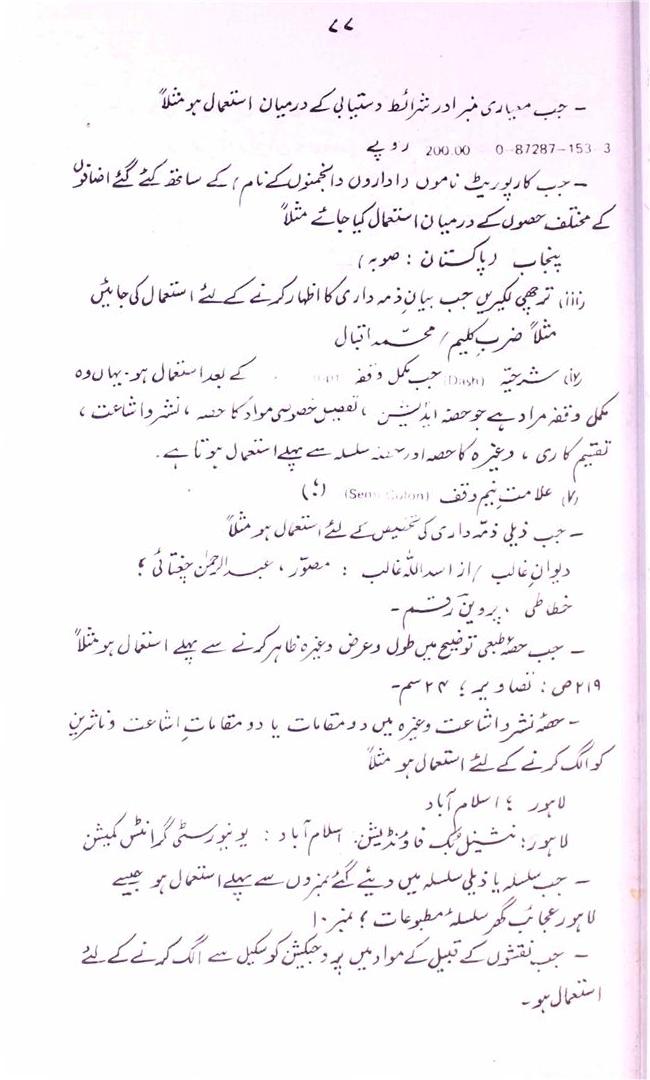 ۷۷
- جب معیاری نمبر اور شرائط دستیابی کے درمیان استعمال ہو مثلاً
0-87287-153-3 200.00 روپے
- جب کارپوریٹ ناموں (اداروں و انجمنوں کے نام) کے ساتھ کئے گئے اضافوں
کے مختلف حصوں کے درمیان استعمال کیا جائے مثلاً
پنجاب (پاکستان : صوبہ)
(iii) ترچھی لکیریں جب بیان ذمہ داری کا اظہار کرنے کے لئے استعمال کی جائیں
مثلاً ضربِ کلیم / محمّد اقبال
(iv) شرحیّہ (Dash) جب مکمل وقفہ کے بعد استعمال ہو۔ یہاں وہ
مکمل وقفہ مراد ہے جو حصّہ ایڈیشن ، تفصیل خصوصی مواد کا حصہ ، نشر و اشاعت ،
تقیم کاری ، وغیرہ کا حصہ اور حصّہ سلسلہ سے پہلے استعمال ہوتا ہے۔
(v) علامتِ نیم وقف (Semi Colon) (؛)
- جب ذیلی ذمّہ داری کی تخصیص کے لئے استعمال ہو مثلاً
دیوانِ غالب / از اسد اللہ غالب : مصوّر ، عبد الرحمٰن چغتائی ؛
خطاطی ، پروین رقم -
- جب حصّہ طبعی توضیح میں طول و عرض وغیرہ ظاہر کرنے سے پہلے استعمال ہو مثلاً
۲۱۹ ص : تصاویر ؛ ۲۴ سم -
- حصّہ نشر و اشاعت وغیرہ میں دو مقامات یا دو مقاماتِ اشاعت و ناشرین
کو الگ کرنے کے لئے استعمال ہو مثلاً
لاہور ؛ اسلام آباد
لاہور : نیشنل بُک فاونڈیشن ؛ اسلام آباد : یونیورسٹی گرانٹس کمیشن
- جب سلسلہ یا ذیلی سلسلہ میں دیئے گئے نمبروں سے پہلے استعمال ہو جیسے
لاہور عجائب گھر سلسلۂ مطبوعات ؛ نمبر ۱۰
- جب نقشوں کے قبیل کے مواد میں پروجیکشن کو سکیل سے الگ کرنے کے لئے
استعمال ہو -